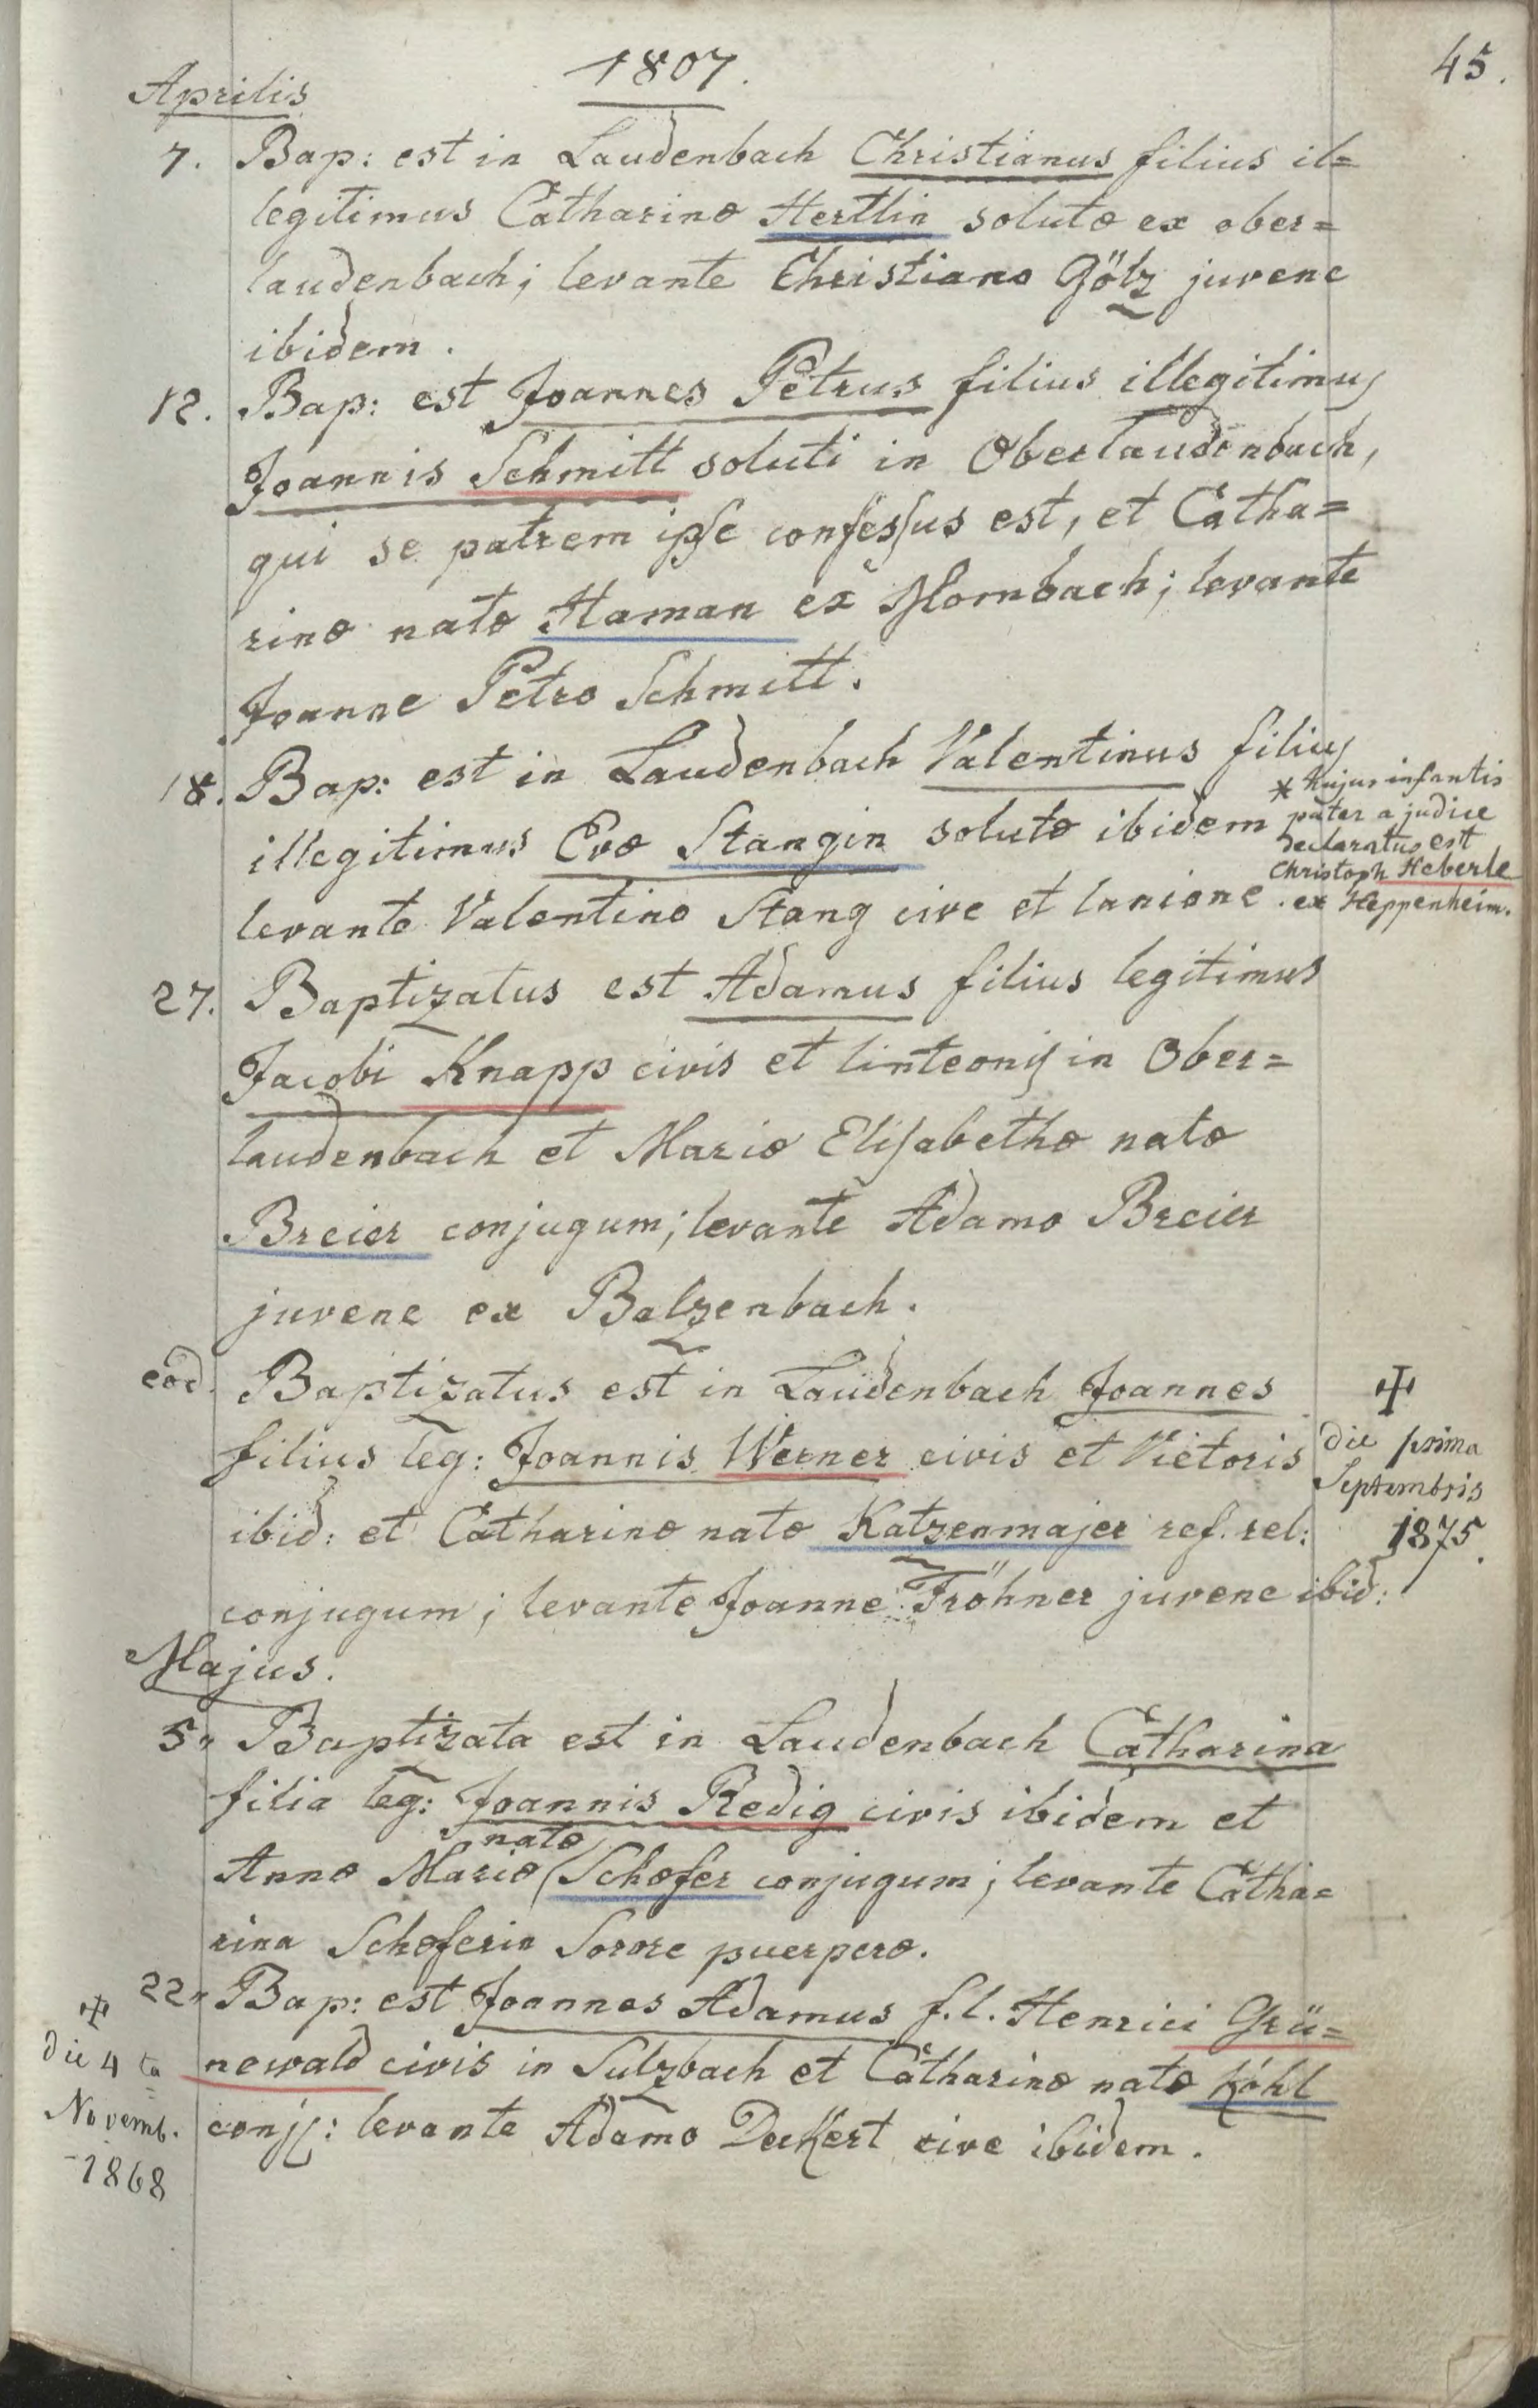 1807.
45.
Aprilis
7. Bap: est in Laudenbach Christianus filius il=
legitimus Catharinæ Hertlin solutæ ex ober=
laudenbach; levante Christiano Gölz juvene
ibidem.
12. Bap: est Joannes Petrus filius illegitimus
Joannis Schmitt soluti in Oberlaudenbach,
qui se patrem ipse confessus est, et Catha=
rinæ natæ Haman ex Mornbach; levante
Joanne Petro Schmitt.
18. Bap: est in Laudenbach Valentinus filius
illegitimus Evæ Stangin solutæ ibidem
levante Valentino Stang cive et lanione.
* hujus infantis
pater a judice
declaratus est
Christoph Heberle
ex Heppenheim.
27. Baptizatus est Adamus filius legitimus
Jacobi Knapp civis et linteonis in Ober=
laudenbach et Mariæ Elisabethæ natæ
Breier conjugum; levante Adamo Breier
juvene ex Balzenbach.
eod. Baptizatus est in Laudenbach Joannes
filius leg: Joannis Werner civis et Vietoris
ibid: et Catharinæ natæ Katzenmajer ref. rel:
conjugum; levante Joanne Fröhner juvene ibid:
✠
die prima
Septembris
1875.
Majus.
5. Baptizata est in Laudenbach Catharina
filia leg: Joannis Redig civis ibidem et
Annæ Mariæ natæ Schæfer conjugum; levante Catha=
rina Schæferin Sorore puerperæ.
22. Bap: est Joannes Adamus f. l. Henrici Grü=
newald civis in Sulzbach et Catharinæ natæ Köhl
conj: levante Adamo Deckert cive ibidem.
✠
die 4ta
Novemb.
1868